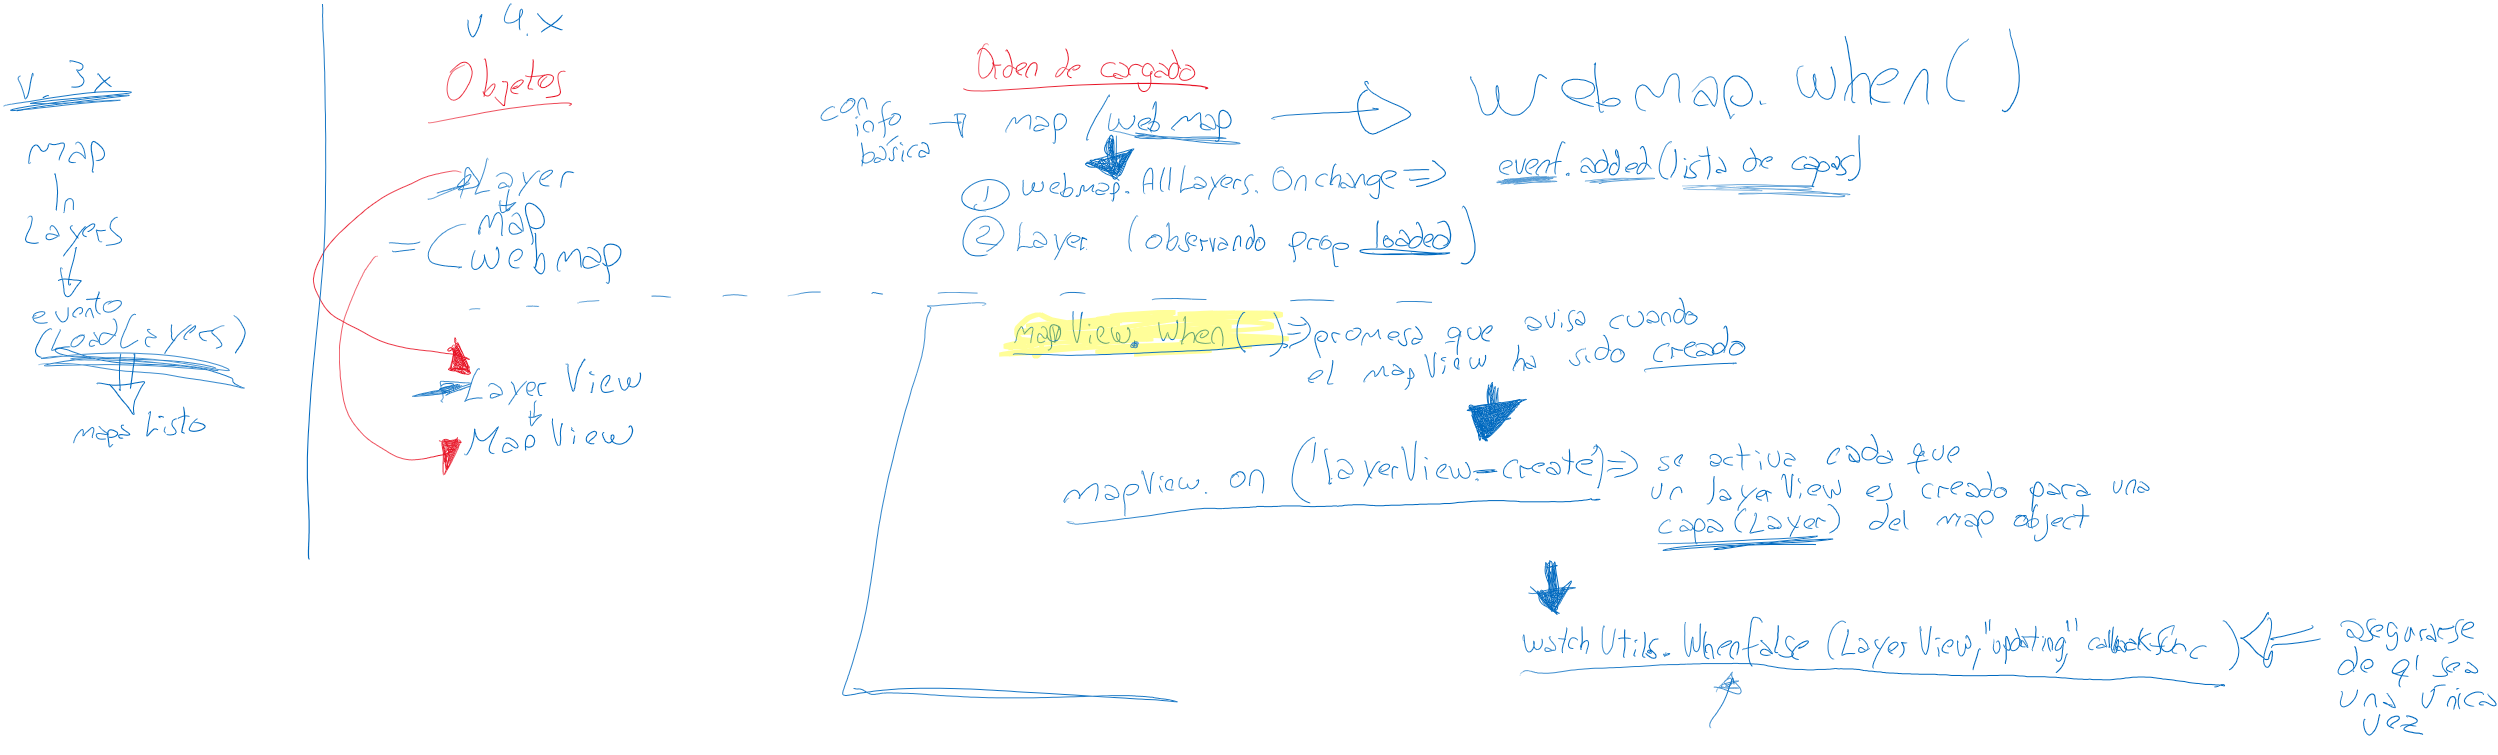 v 3x
map
layers
evento
load(layers)
map listo
v 4.x
Objeto
Layer
map
= (webmap
LayerView
MapView
Orden de carga
config → map/webmap → webmap.when()
basica
① webmap.AllLayers.Onchange => event.added(iterate
② Layer (observando prop. loaded)
mapView.when() => promesa que avisa cuando
el mapView ha sido creado
mapView.on(layerView-create) => se activa cada que
un layerView es creado para una
capa(Layer) del map object
watchUtils.whenFalse(LayerView,"updating" callback
asegurarse
de q' sea
una única
vez